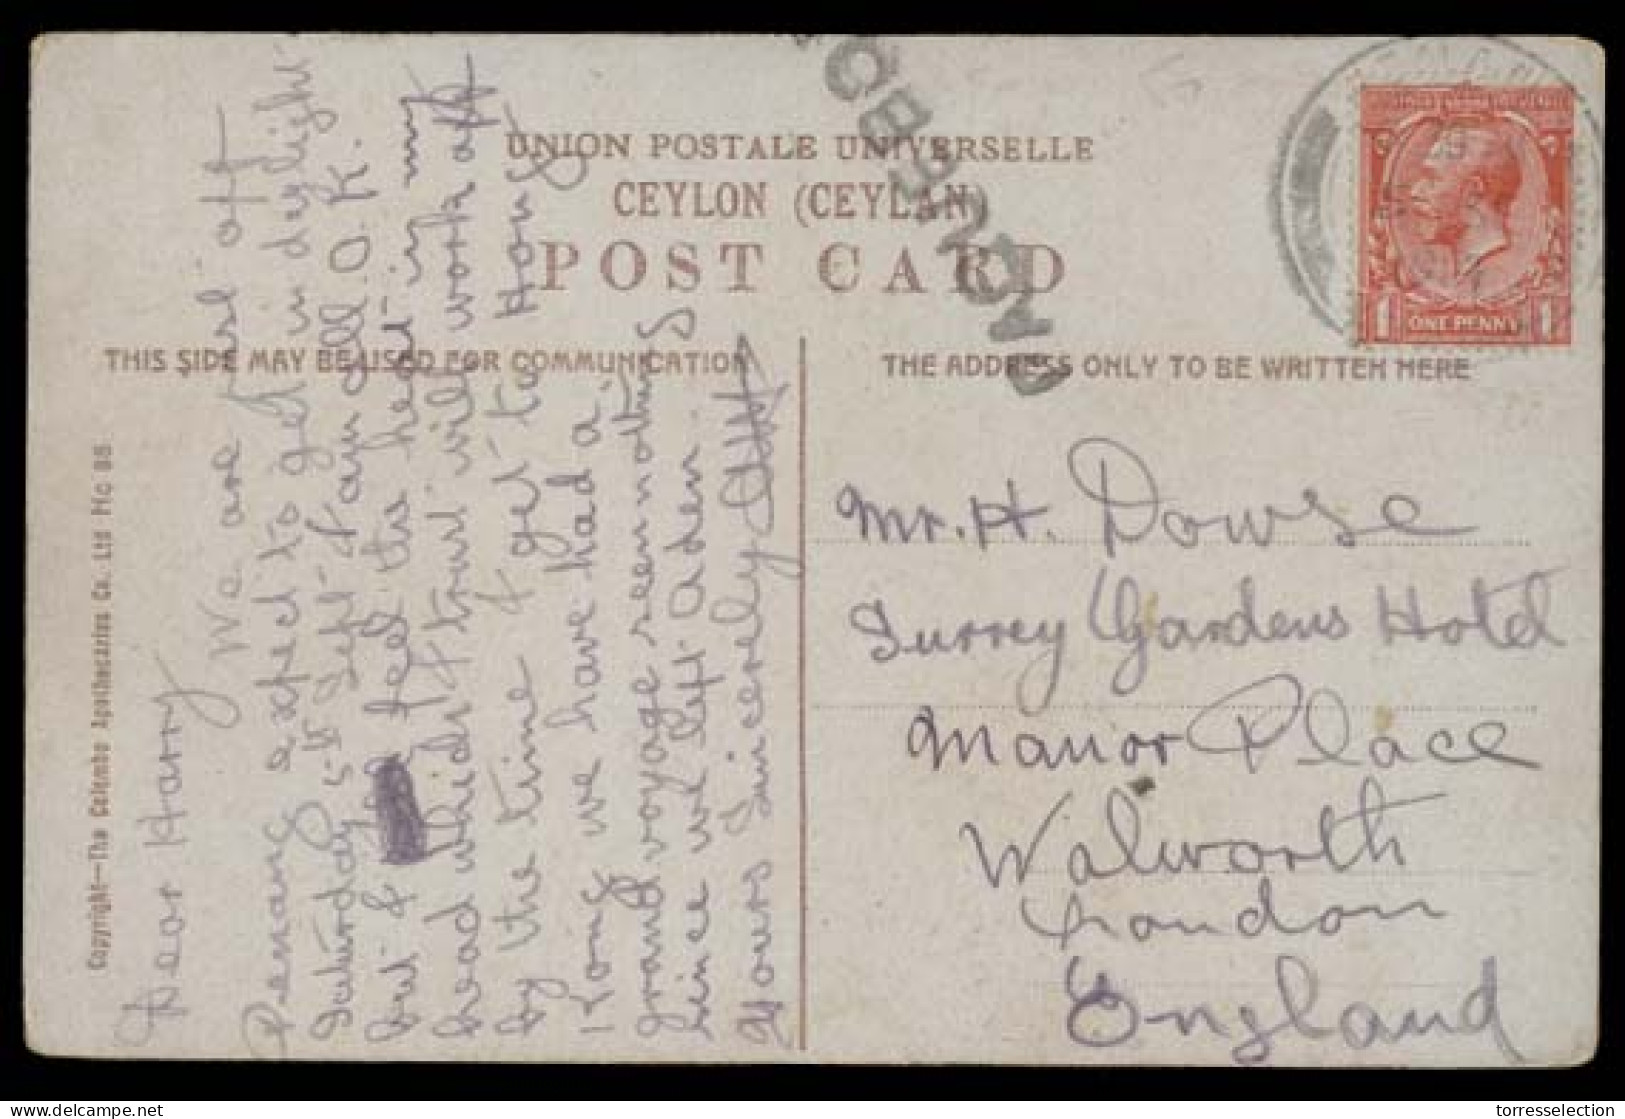 UNION POSTALE UNIVERSELLE
CEYLON (CEYLAN)
POST CARD
THIS SIDE MAY BE USED FOR COMMUNICATION
THE ADDRESS ONLY TO BE WRITTEN HERE
Copyright—The Colombo Apothecaries Co. Ltd No 35
ONE PENNY
1
1
Dear Harry
We are just off
Penang & expect to get in daylight
Saturday 5th Sept. I am all O.K.
but I feel this heat in my
head which I trust will work off
by the time I get to Hong
Kong we have had a
grand voyage seem nothing
since we left Aden.
Yours Sincerely
Mr. H. Dowse
Surrey Gardens Hotel
Manor Place
Walworth
London
England
torresselection